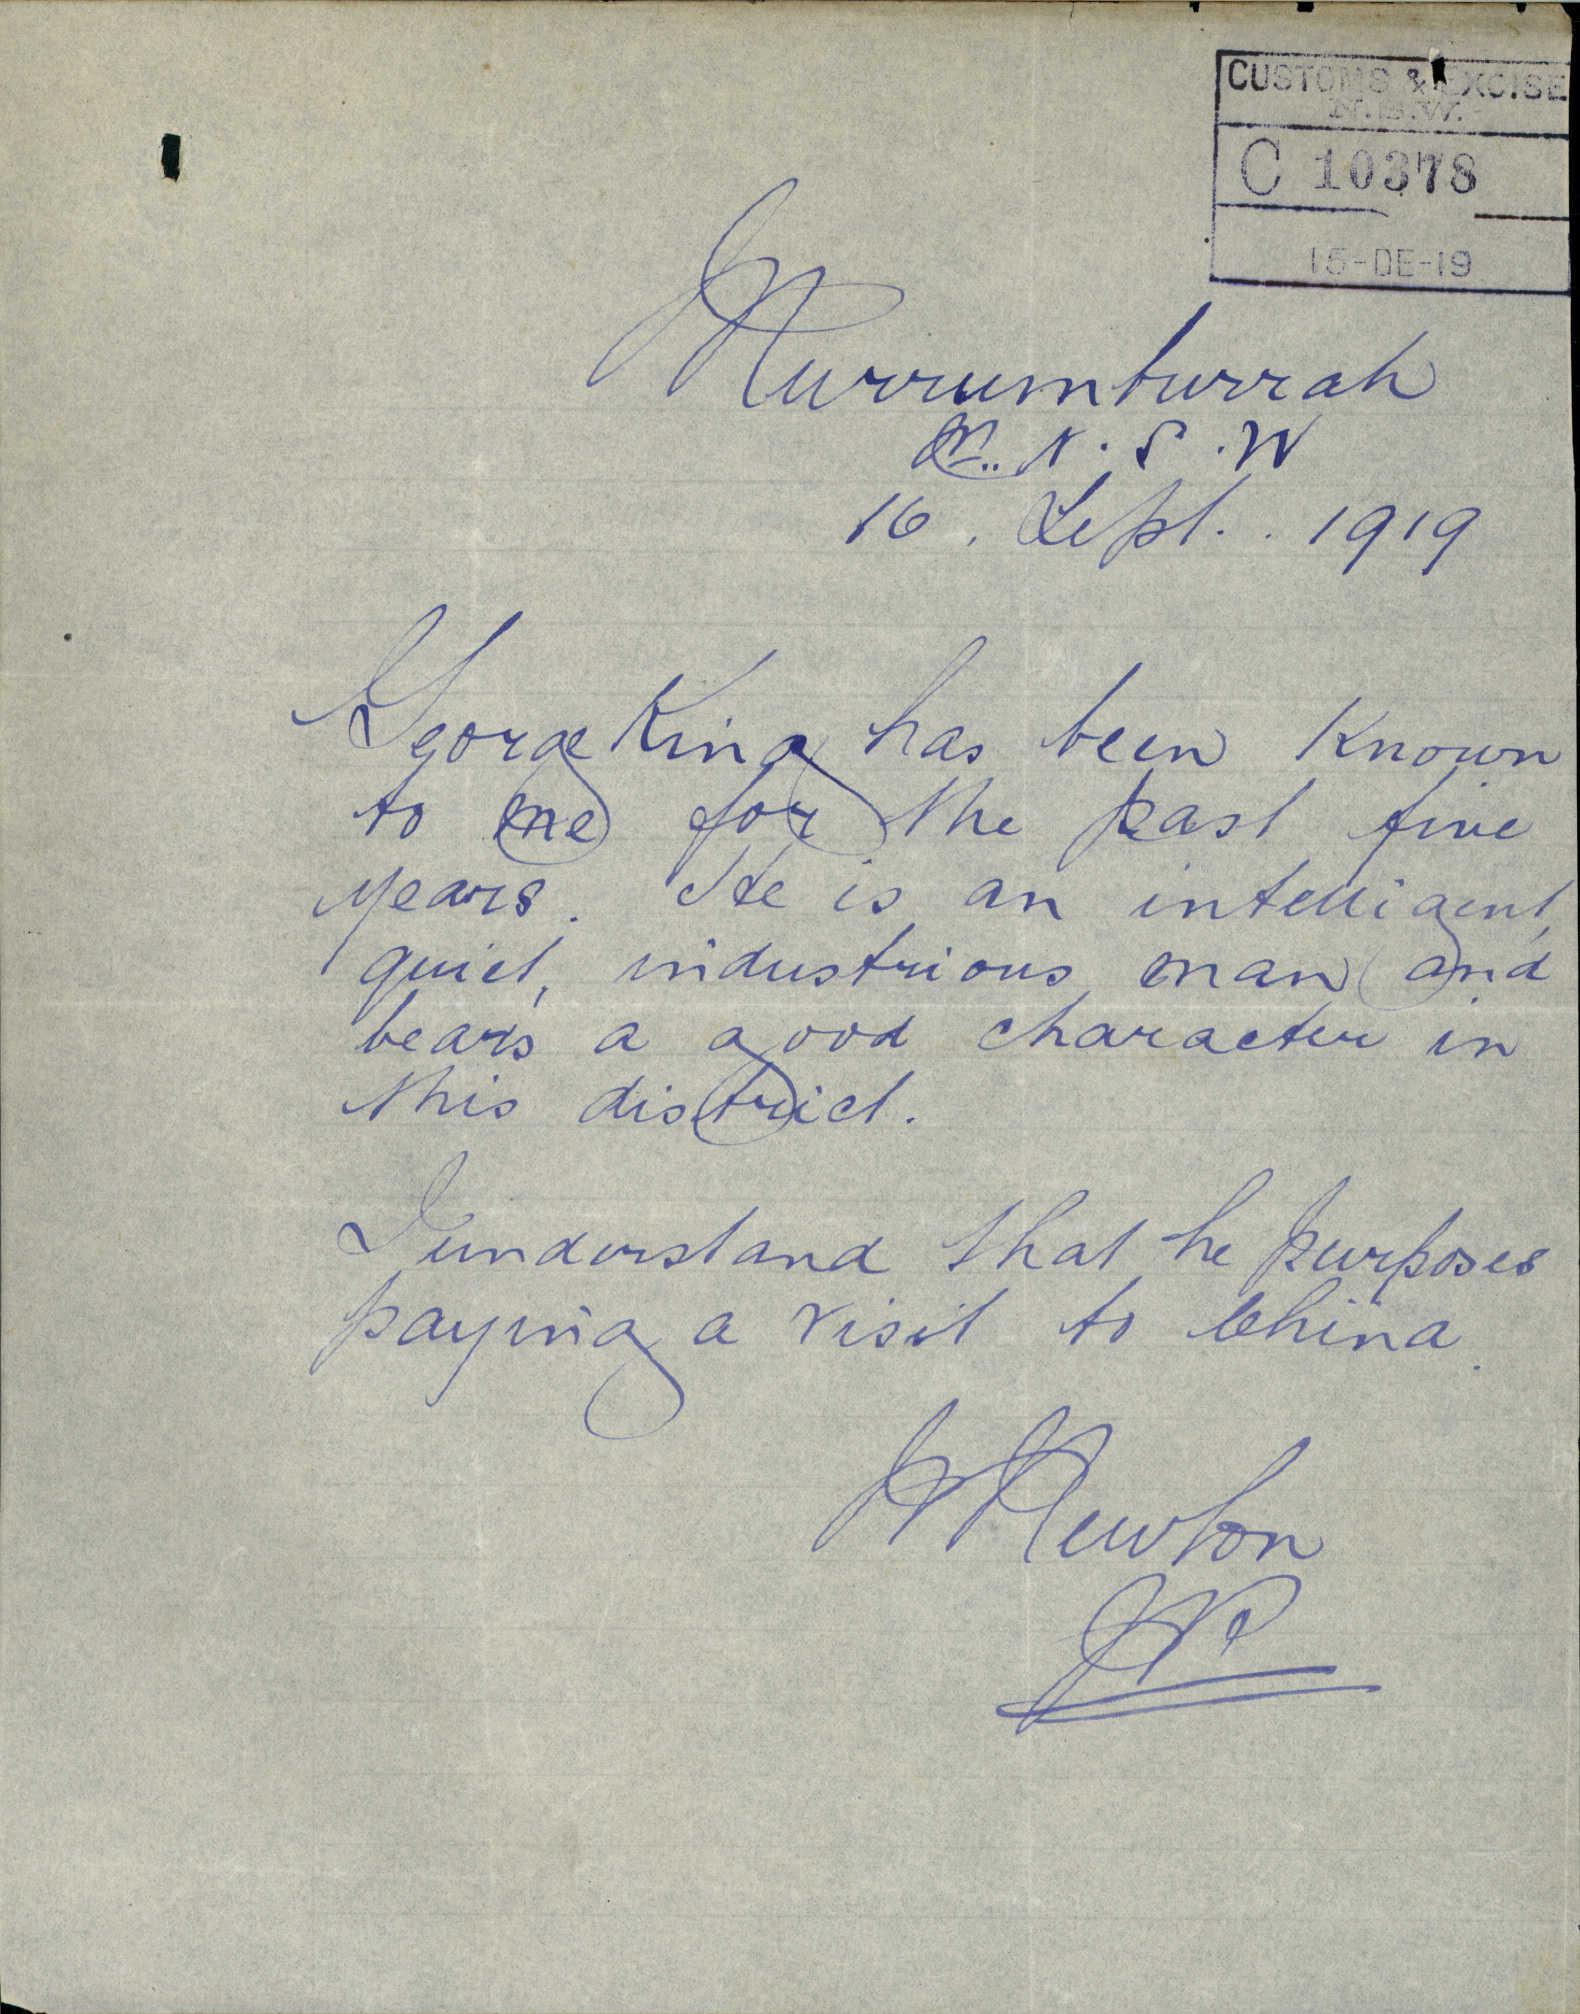 CUSTOMS & EXCISE
N.S.W.
C 10378
15-DE-19
Murrumburrah
N.S.W
16. Sept.. 1919
George King has been known
to me for the past five
years. He is an intelligent,
quiet, industrious man and
bears a good character in
this district.
I understand that he purposes
paying a visit to China.
Newton
JP